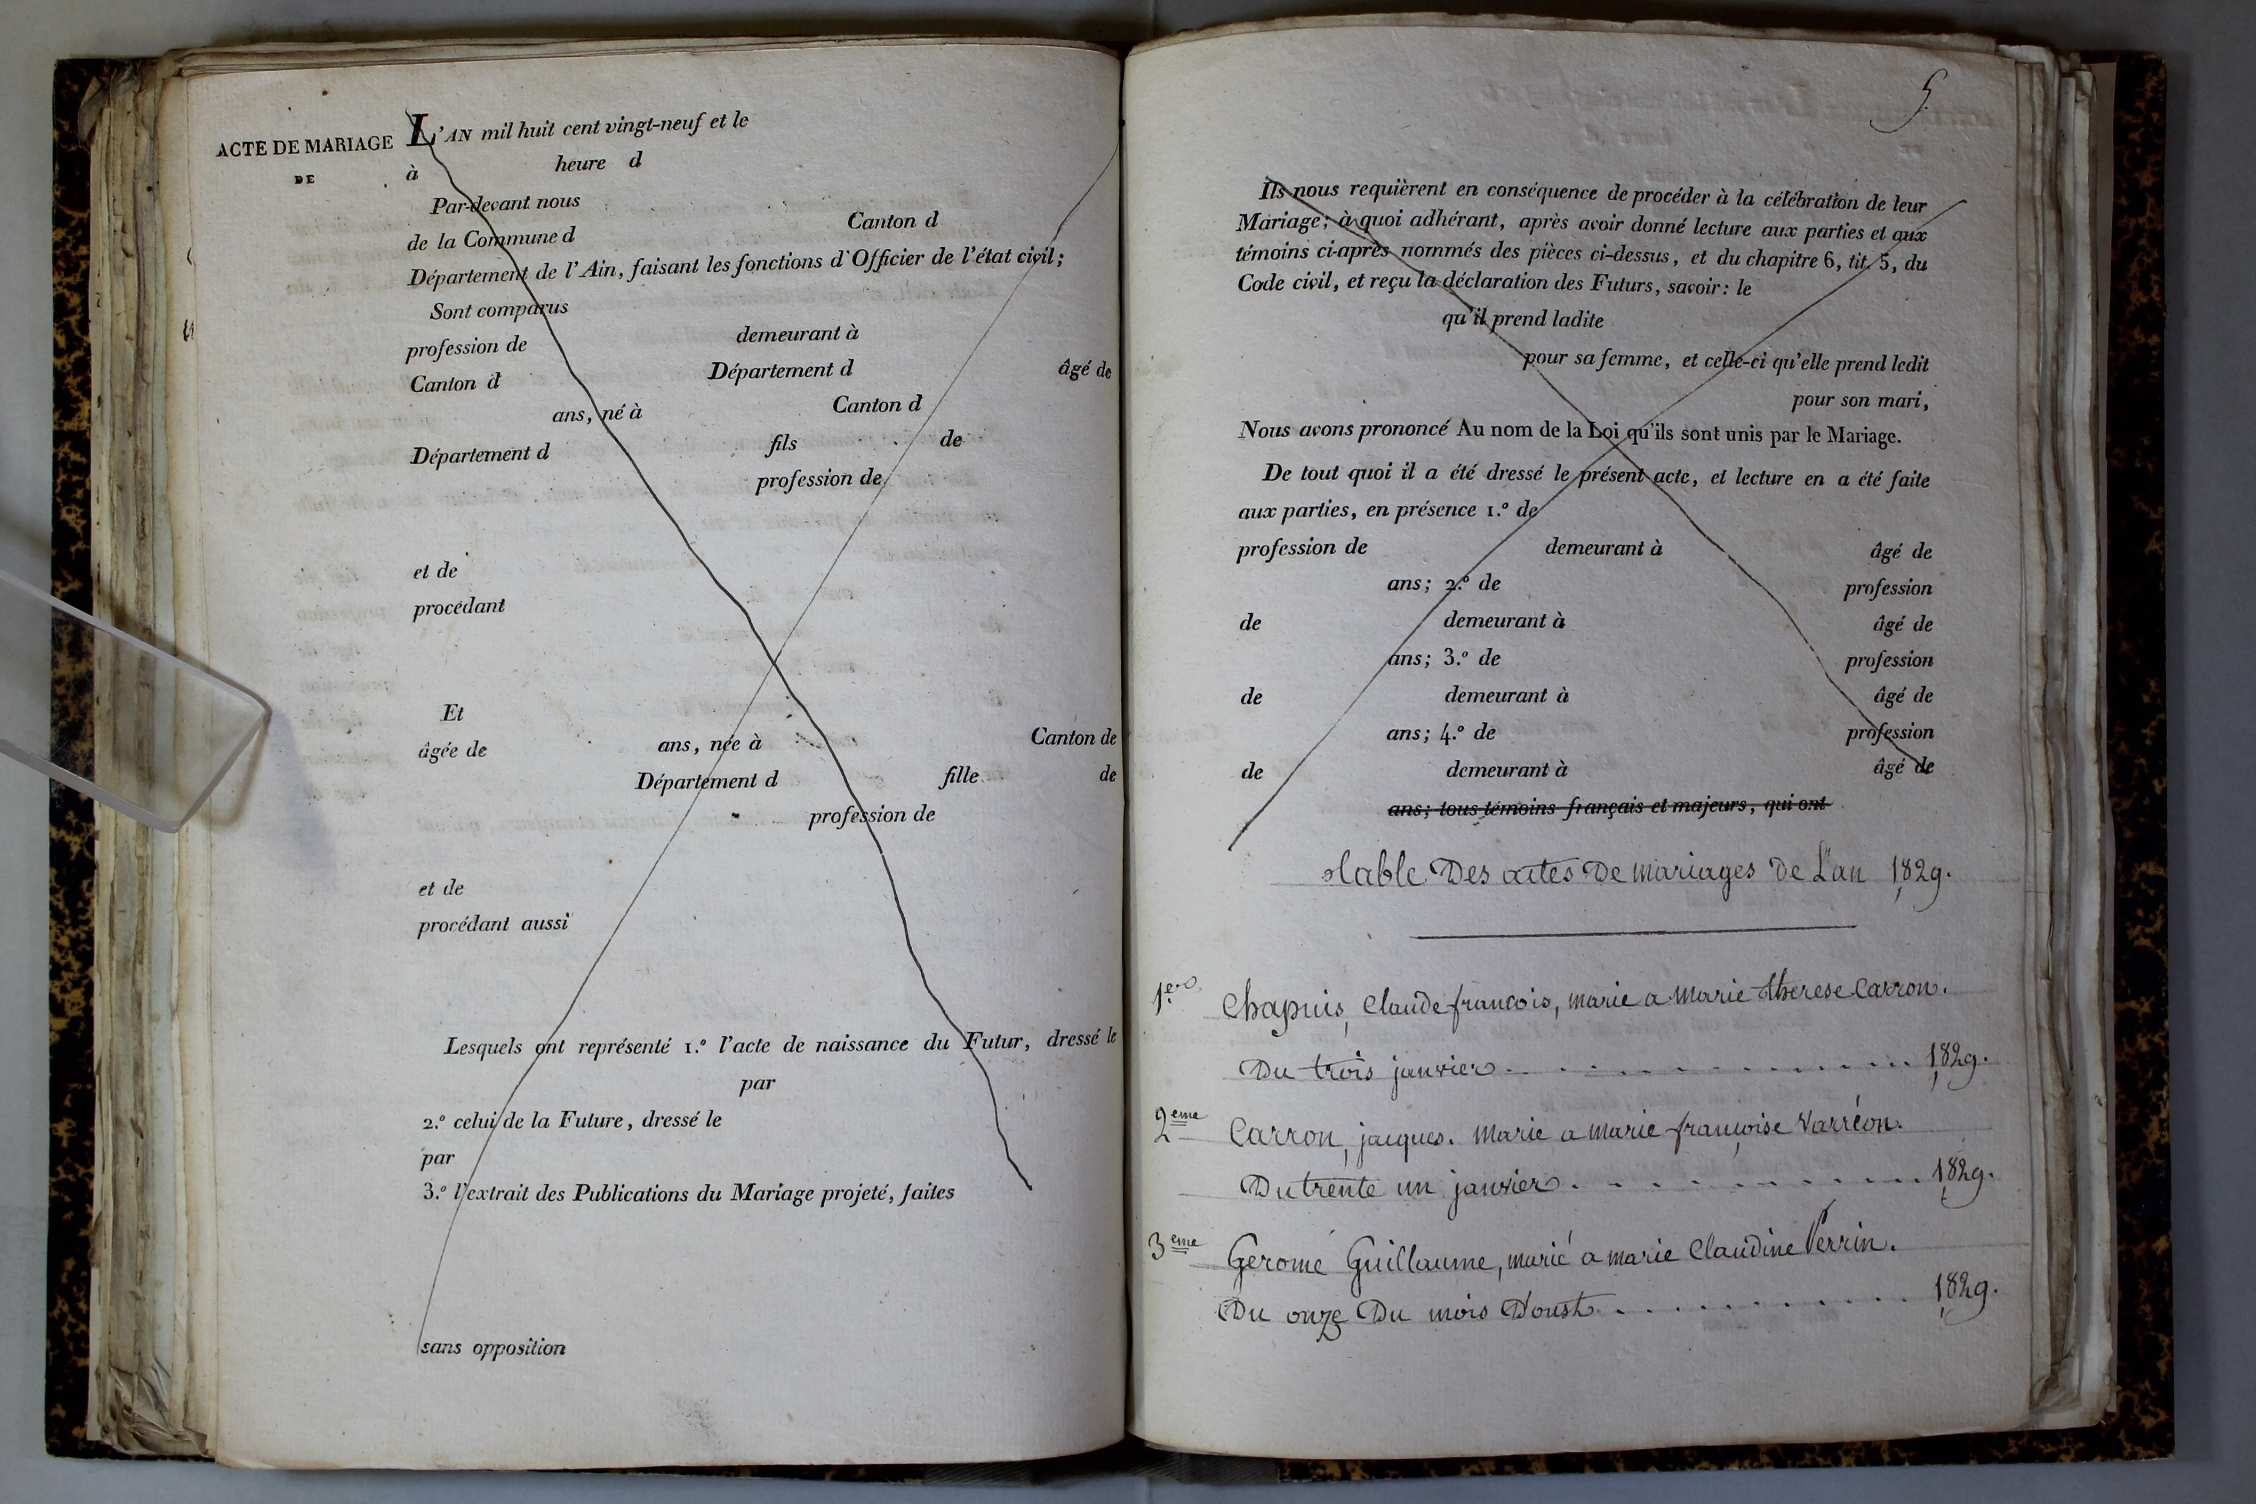 ACTE DE MARIAGE
DE
L'AN mil huit cent vingt-neuf et le
à heure d
Par-devant nous
de la Commune d Canton d
Département de l'Ain, faisant les fonctions d'Officier de l'état civil;
Sont comparus
profession de demeurant à
Canton d Département d âgé de
ans, né à Canton d
Département d fils de
profession de
et de
procédant
Et
âgée de ans, née à Canton de
Département d fille de
profession de
et de
procédant aussi
Lesquels ont représenté 1.º l'acte de naissance du Futur, dressé le
par
2.º celui de la Future, dressé le
par
3.º l'extrait des Publications du Mariage projeté, faites
sans opposition
5.
Ils nous requièrent en conséquence de procéder à la célébration de leur
Mariage; à quoi adhérant, après avoir donné lecture aux parties et aux
témoins ci-après nommés des pièces ci-dessus, et du chapitre 6, tit. 5, du
Code civil, et reçu la déclaration des Futurs, savoir: le
qu'il prend ladite
pour sa femme, et celle-ci qu'elle prend ledit
pour son mari,
Nous avons prononcé Au nom de la Loi qu'ils sont unis par le Mariage.
De tout quoi il a été dressé le présent acte, et lecture en a été faite
aux parties, en présence 1.º de
profession de demeurant à âgé de
ans; 2.º de profession
de demeurant à âgé de
ans; 3.º de profession
de demeurant à âgé de
ans; 4.º de profession
de demeurant à âgé de
ans; tous témoins français et majeurs, qui ont
table Des actes De mariages de L'an 1829.
1er Chapuis, Claude francois, marie a Marie therese Carron.
Du trois janvier . . . . . . . . . . . . . . 1829.
2eme Carron, jacques. Marie a marie françoise Varréon.
Du trente un janvier . . . . . . . . . . . . 1829.
3eme Gerome Guillaume, marié a marie Claudine Perrin.
Du onze Du mois Doust . . . . . . . . . . . . 1829.